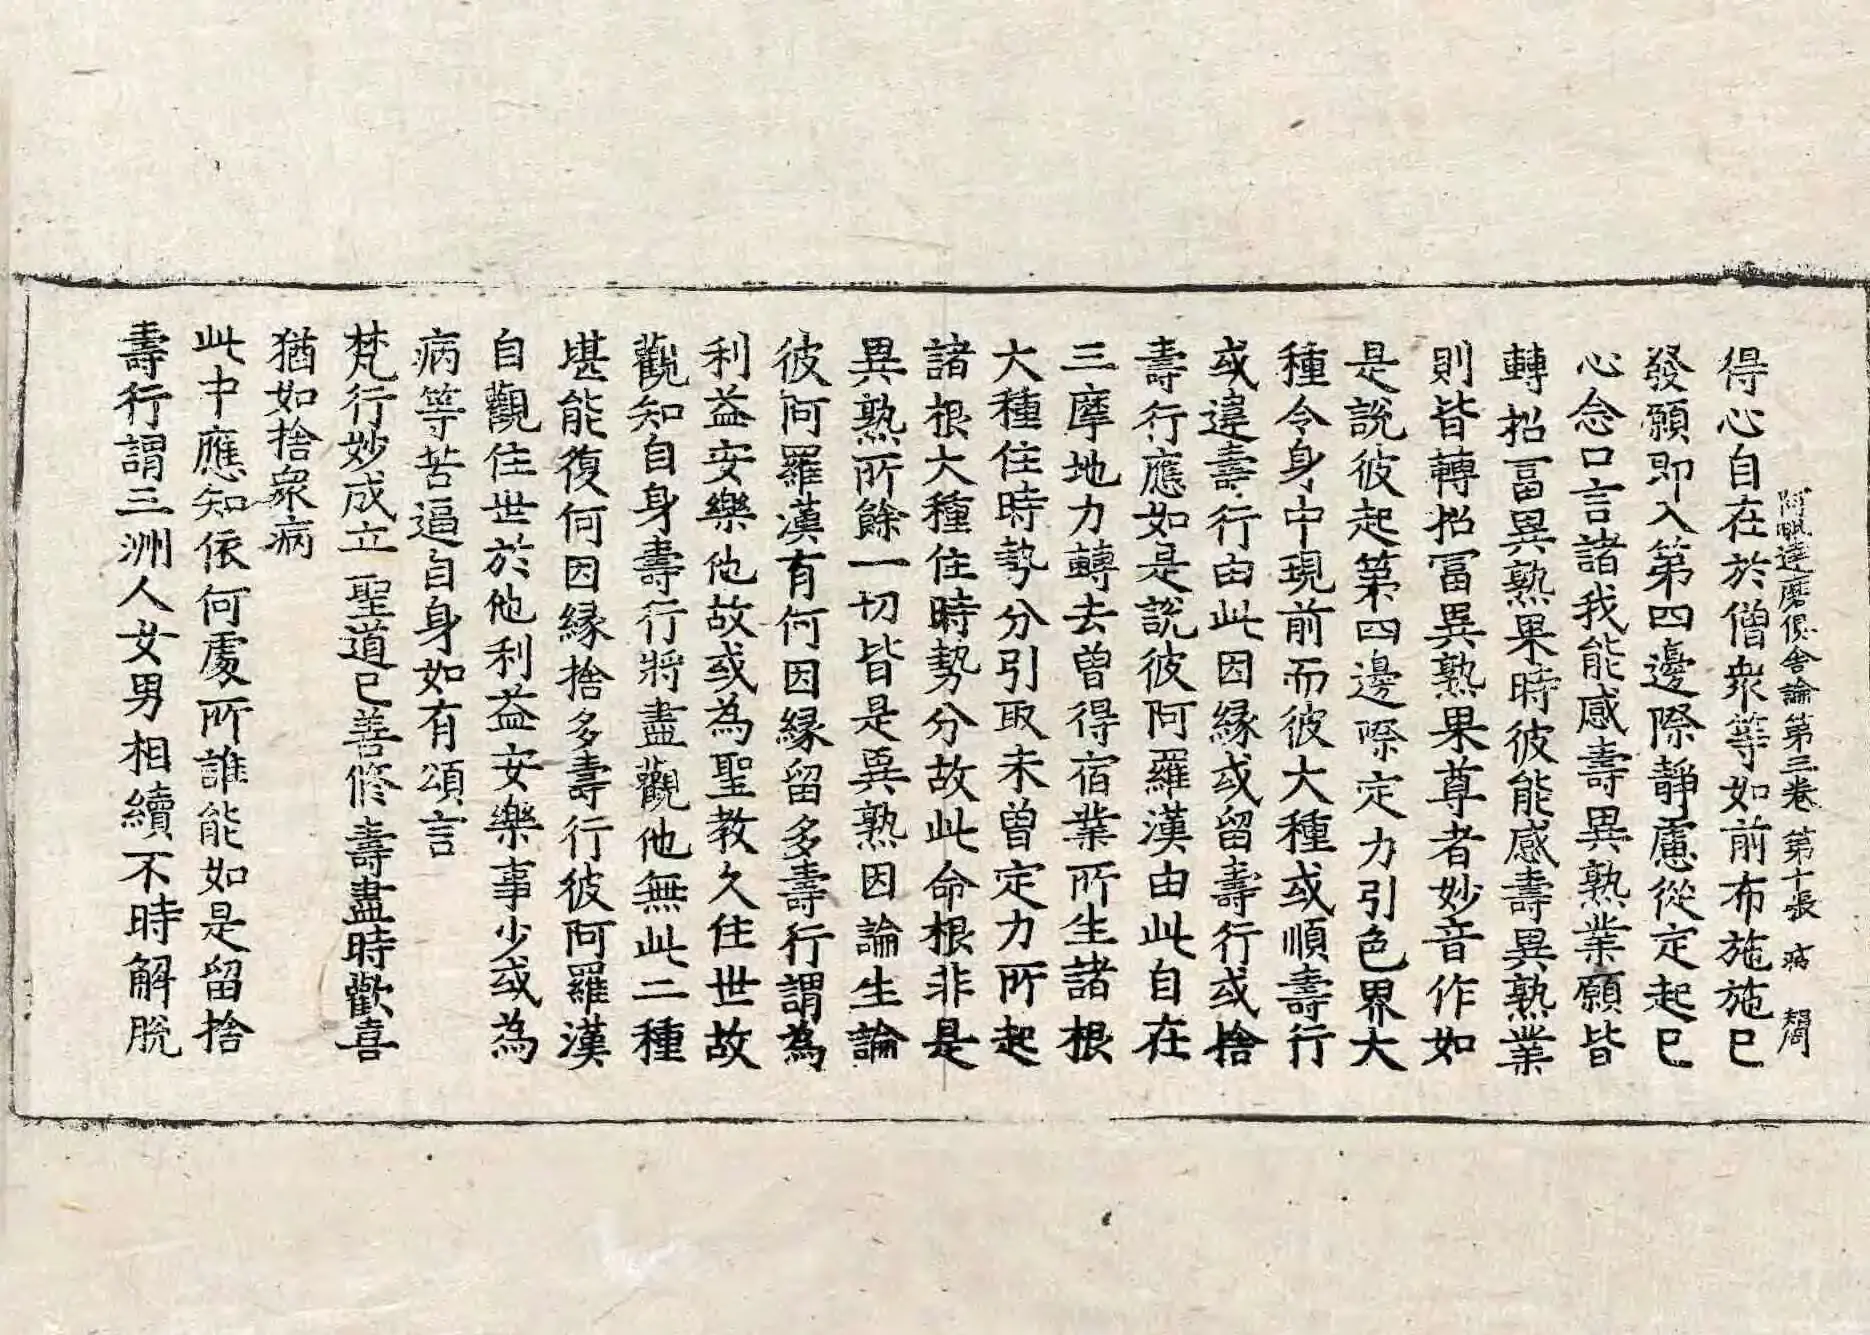 阿毗達磨俱舍論第三卷 第十張 疲
得心自在於僧衆等如前布施施已
發願即入第四邊際靜慮從定起已
心念口言諸我能感壽異熟業願皆
轉招冨異熟果時彼能感壽異熟業
則皆轉招冨異熟果尊者妙音作如
是說彼起第四邊際定力引色界大
種令身中現前而彼大種或順壽行
或違壽行由此因緣或留壽行或捨
壽行應如是說彼阿羅漢由此自在
三摩地力轉去曾得宿業所生諸根
大種住時勢分引取未曾定力所起
諸根大種住時勢分故此命根非是
異熟所餘一切皆是異熟因論生論
彼阿羅漢有何因緣留多壽行謂為
利益安樂他故或為聖教久住世故
觀知自身壽行將盡觀他無此二種
堪能復何因緣捨多壽行彼阿羅漢
自觀住世於他利益安樂事少或為
病等苦逼自身如有頌言
梵行妙成立 聖道已善修 壽盡時歡喜
猶如捨衆病
此中應知依何處所誰能如是留捨
壽行謂三洲人女男相續不時解脫